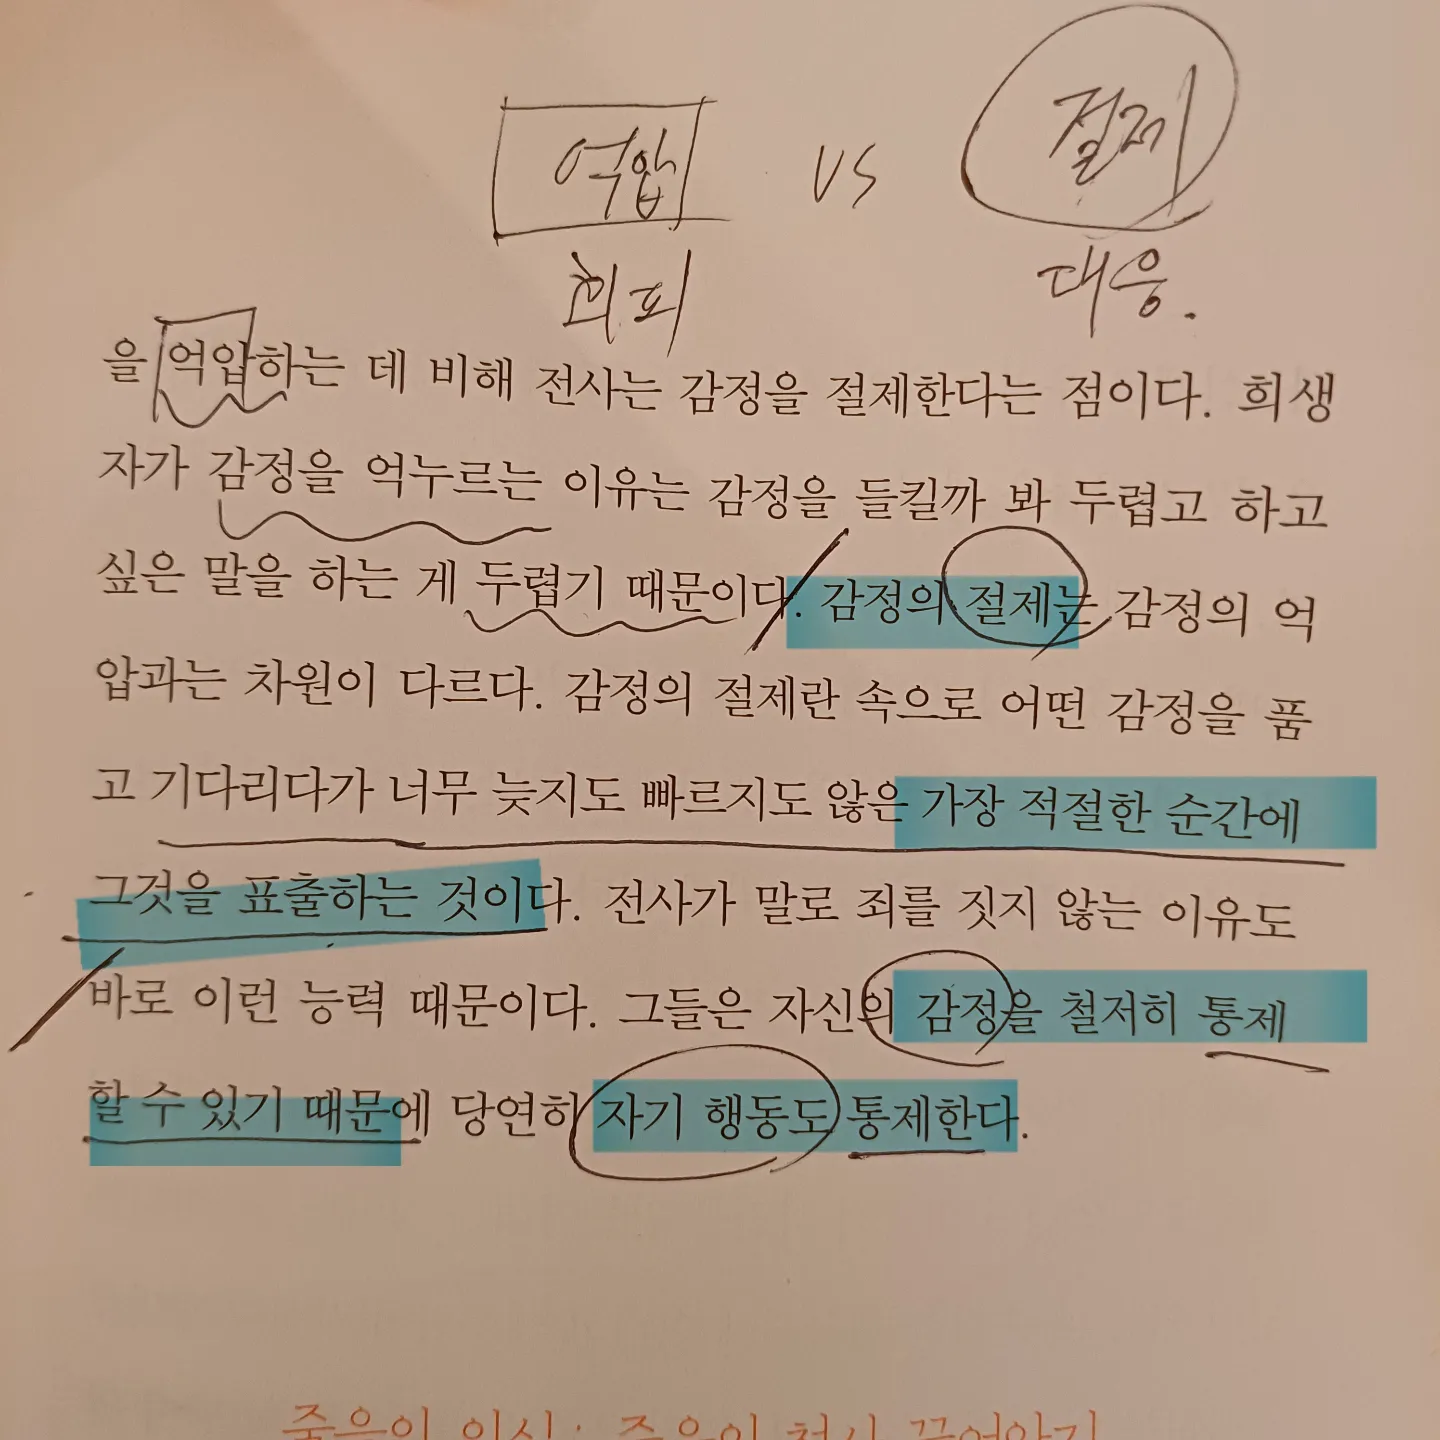 억압 vs 절제
회피 대응.
을 억압하는 데 비해 전사는 감정을 절제한다는 점이다. 희생
자가 감정을 억누르는 이유는 감정을 들킬까 봐 두렵고 하고
싶은 말을 하는 게 두렵기 때문이다. 감정의 절제는 감정의 억
압과는 차원이 다르다. 감정의 절제란 속으로 어떤 감정을 품
고 기다리다가 너무 늦지도 빠르지도 않은 가장 적절한 순간에
그것을 표출하는 것이다. 전사가 말로 죄를 짓지 않는 이유도
바로 이런 능력 때문이다. 그들은 자신의 감정을 철저히 통제
할 수 있기 때문에 당연히 자기 행동도 통제한다.
죽음의 의식: 죽음의 천사 끌어안기